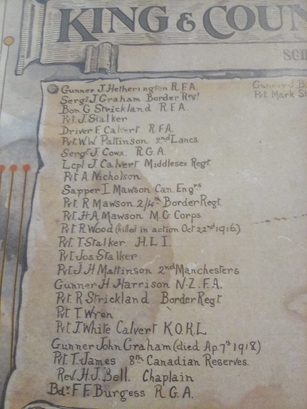 KING & COUN
Gunner J. Hetherington R.F.A.
Sergt J Graham Border Regt
Bom. G Strickland R.F.A.
Pvt. J. Stalker
Driver E Calvert R.F.A.
Pvt. W.W Pattinson 2nd Lancs
Sergt J Cowx R.G.A.
Lcpl J. Calvert Middlesex Regt
Pvt A Nicholson
Sapper I Mawson Can. Engrs
Pvt R Mawson 2/4th Border Regt
Pvt. H.A Mawson M.G Corps
Pvt R Wood (killed in action Oct 22nd 1916)
Pvt T Stalker H.L.I.
Pvt Jos Stalker
Pvt J H Mattinson 2nd Manchesters
Gunner H Harrison N.Z.F.A.
Pvt R Strickland Border Regt
Pvt T. Wren
Pvt J. White Calvert K.O.R.L
Gunner John Graham (died Ap 7th 1918)
Pvt T. James 8th Canadian Reserves
Rev H.J. Bell Chaplain
Bdr F F Burgess R.G.A.
Gunner J
Pvt Mark